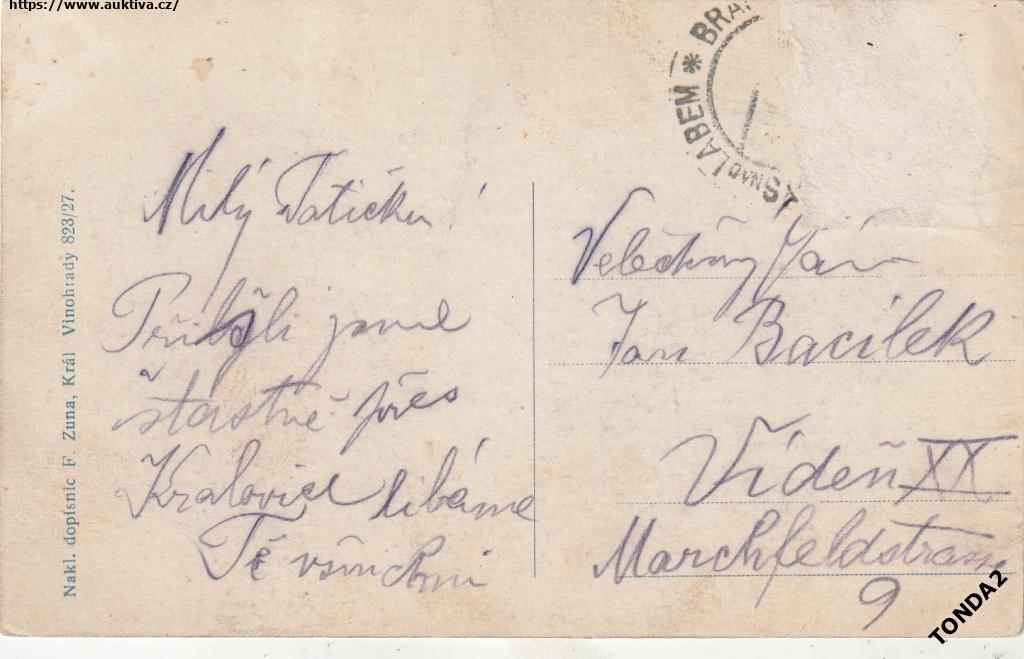 https://www.auktiva.cz/
BRA
S NAD LABEM *
Milý Tatíčku!
Přibyli jsme
šťastně přes
Kralovice líbáme
Tě všichni
Velectěný Pán
Jan Bacílek
Vídeň XX
Marchfeldstrasse
9
Nakl. dopisnic F. Zuna, Král Vinohrady 823/27.
TONDA2